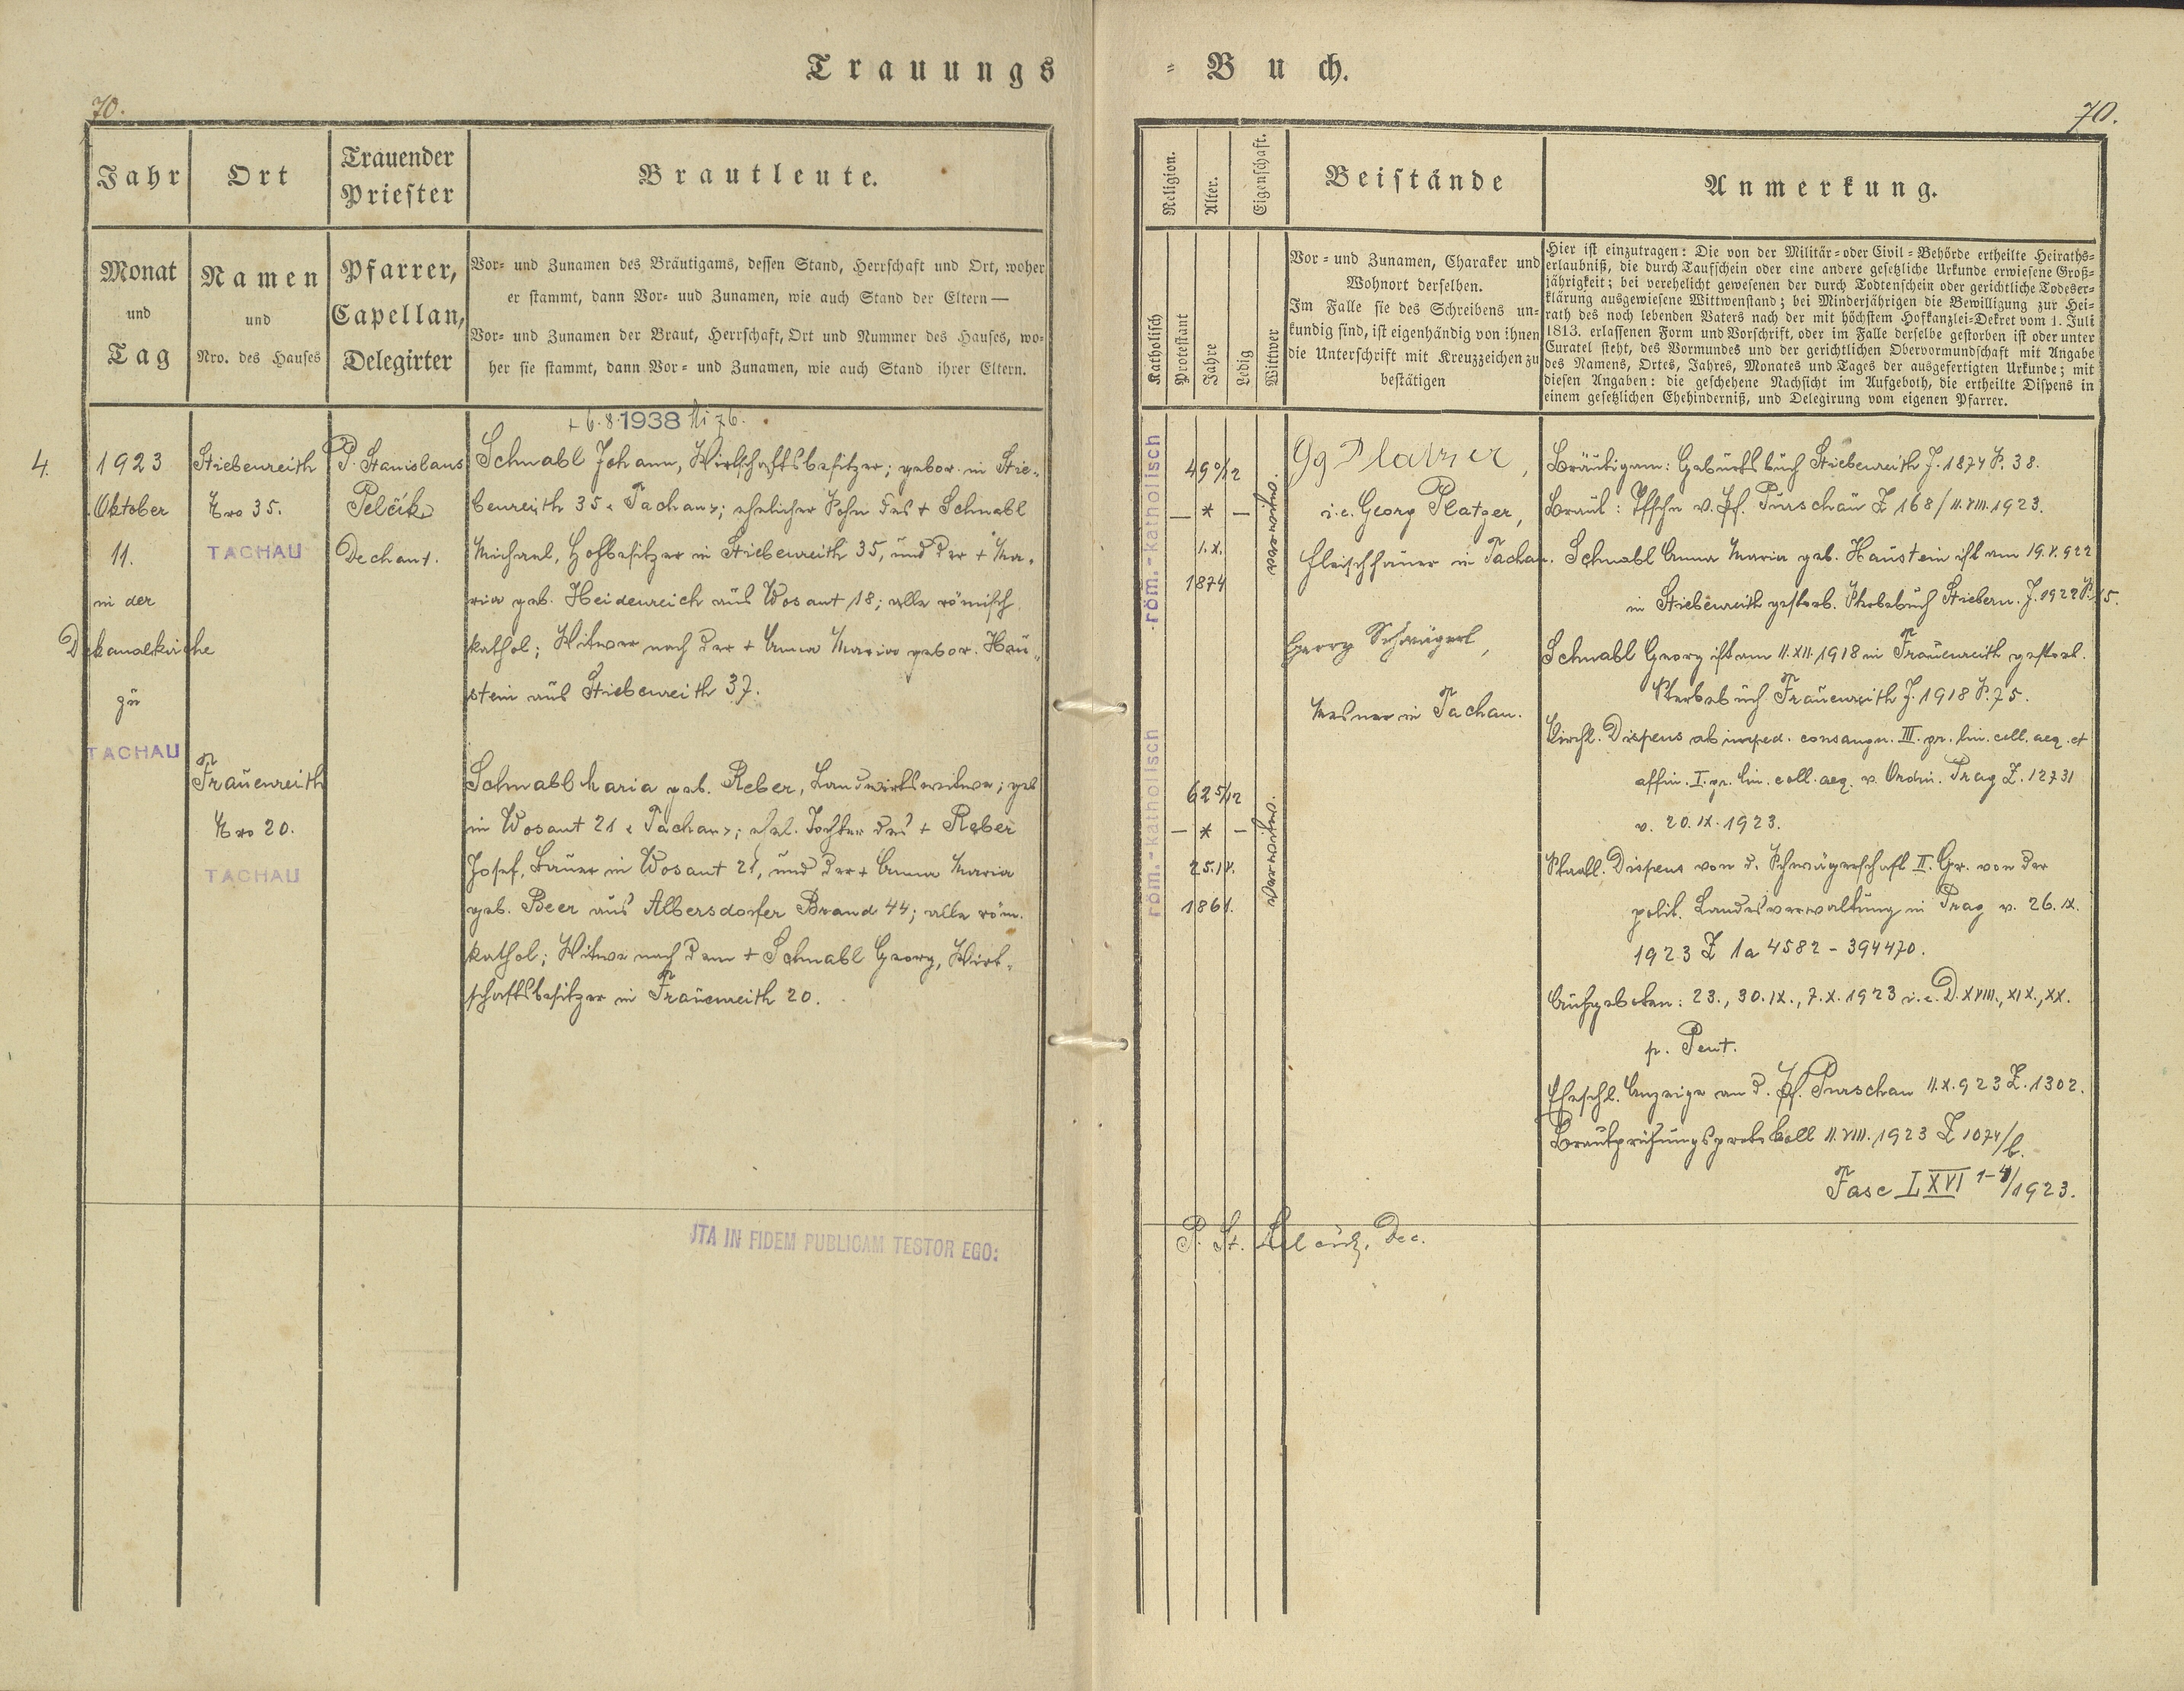 Trauungs
70.
Jahr
Ort
Trauender
Priester
Brautleute.
Monat
und
Tag
Namen
und
Nro. des Hauses
Pfarrer,
Capellan,
Delegirter
Vor- und Zunamen des Bräutigams, dessen Stand, Herrschaft und Ort, woher
er stammt, dann Vor- und Zunamen, wie auch Stand der Eltern —
Vor- und Zunamen der Braut, Herrschaft, Ort und Nummer des Hauses, wo-
her sie stammt, dann Vor- und Zunamen, wie auch Stand ihrer Eltern.
4.
1923
Oktober
11.
in der
Dekanalkirche
zu
TACHAU
Stiebenreith
Nro 35.
TACHAU
Frauenreith
Nro 20.
TACHAU
P. Stanislaus
Pelčik
Dechant.
+ 6.8.1938 76.
Schnabl Johann, Wirtschaftsbesitzer; gebor. in Stie-
benreith 35 < Tachau >; ehelicher Sohn des + Schnabl
Michael, Hofbesitzer in Stiebenreith 35, und der + Ma-
ria geb. Heidenreich aus Wosant 18; alle römisch
kathol; Witwer nach der + Anna Maria gebor. Hau-
stein aus Stiebenreith 37.
Schnabl Maria geb. Reber, Landwirtswitwe; geb
in Wosant 21 < Tachau >; ehel. Tochter des + Reber
Josef, Bauer in Wosant 21, und der + Anna Maria
geb. Beer aus Albersdorfer Brand 44; alle röm.
kathol; Witwe nach dem + Schnabl Georg, Wirt-
schaftsbesitzer in Frauenreith 20.
ITA IN FIDEM PUBLICAM TESTOR EGO:
= Buch.
70.
Religion.
Alter.
Eigenschaft.
Beistände
Anmerkung.
Katholisch
Protestant
Jahre
Ledig
Wittwer
Vor- und Zunamen, Charakter und
Wohnort derselben.
Im Falle sie des Schreibens un-
kundig sind, ist eigenhändig von ihnen
die Unterschrift mit Kreuzzeichen zu
bestätigen
Hier ist einzutragen: Die von der Militär- oder Civil-Behörde ertheilte Heiraths-
erlaubniß, die durch Taufschein oder eine andere gesetzliche Urkunde erwiesene Groß-
jährigkeit; bei verehelicht gewesenen der durch Todtenschein oder gerichtliche Todeser-
klärung ausgewiesene Wittwenstand; bei Minderjährigen die Bewilligung zur Hei-
rath des noch lebenden Vaters nach der mit höchstem Hofkanzlei-Dekret vom 1. Juli
1813. erlassenen Form und Vorschrift, oder im Falle derselbe gestorben ist oder unter
Curatel steht, des Vormundes und der gerichtlichen Obervormundschaft mit Angabe
des Namens, Ortes, Jahres, Monates und Tages der ausgefertigten Urkunde; mit
diesen Angaben: die geschehene Nachsicht im Aufgeboth, die ertheilte Dispens in
einem gesetzlichen Ehehinderniß, und Delegirung vom eigenen Pfarrer.
röm.-katholisch
49 0/12
— * —
1.X.
1874
verwitwet
röm.-katholisch
62 5/12
— * —
25.IV.
1861.
verwitwet
Gg Platzer,
i.e. Georg Platzer,
Fleischhauer in Tachau.
Georg Schwägerl,
Mesner in Tachau.
Bräutigam: Geburtsbuch Stiebenreith J. 1874 S. 38.
Braut: v. Pf. Purschau Z 168/11.VIII.1923.
Schnabl Anna Maria geb. Haustein ist am 19.V.922
in Stiebenreith gestorb. Sterbebuch Stiebenr. J. 1922 S. 15.
Schnabl Georg ist am 11.XII.1918 in Frauenreith gestorb.
Sterbebuch Frauenreith J. 1918 S. 75.
Kirchl. Dispens ab imped. consangn. III. gr. lin. coll. aeq. et
affin. I. gr. lin. coll. aeq. v. Ordin. Prag Z. 12731
v. 20.IX.1923.
Staatl. Dispens von d. Schwägerschaft II. Gr. von der
polit. Landesverwaltung in Prag v. 26.IX.
1923 Z 1a 4582 - 394470.
Aufgeboten: 23., 30.IX., 7.X.1923 i.e. D. XVIII., XIX., XX.
p. Pent.
Eheschl. Anzeige an d. Pf. Purschau 11.X.923 Z. 1302.
Brautprüfungsprotokoll 11.VIII.1923 Z 1074/b.
Fasc LXVI 1-4/1923.
P. St. Pelčik, Dec.